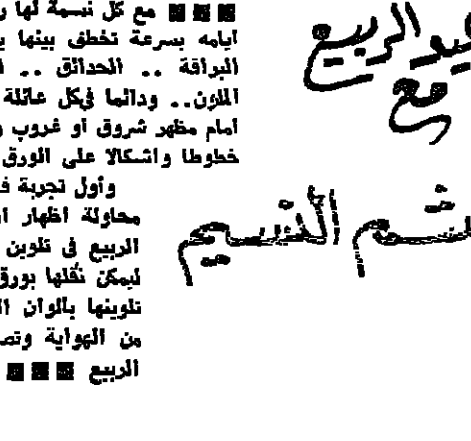 عيد الربيع
مع
شم النسيم
مع كل نسمة لها ر
ايامه بسرعة تخطف بينها ي
البراقة .. الحدائق .. ا
الملون.. ودائما في كل عائلة
امام مظهر شروق او غروب و
خطوطا واشكالا على الورق
وأول تجربة ف
محاولة اظهار ا
الربيع في تلوين
ليمكن نقلها بورق
تلوينها بألوان ا
من الهواية وتص
الربيع